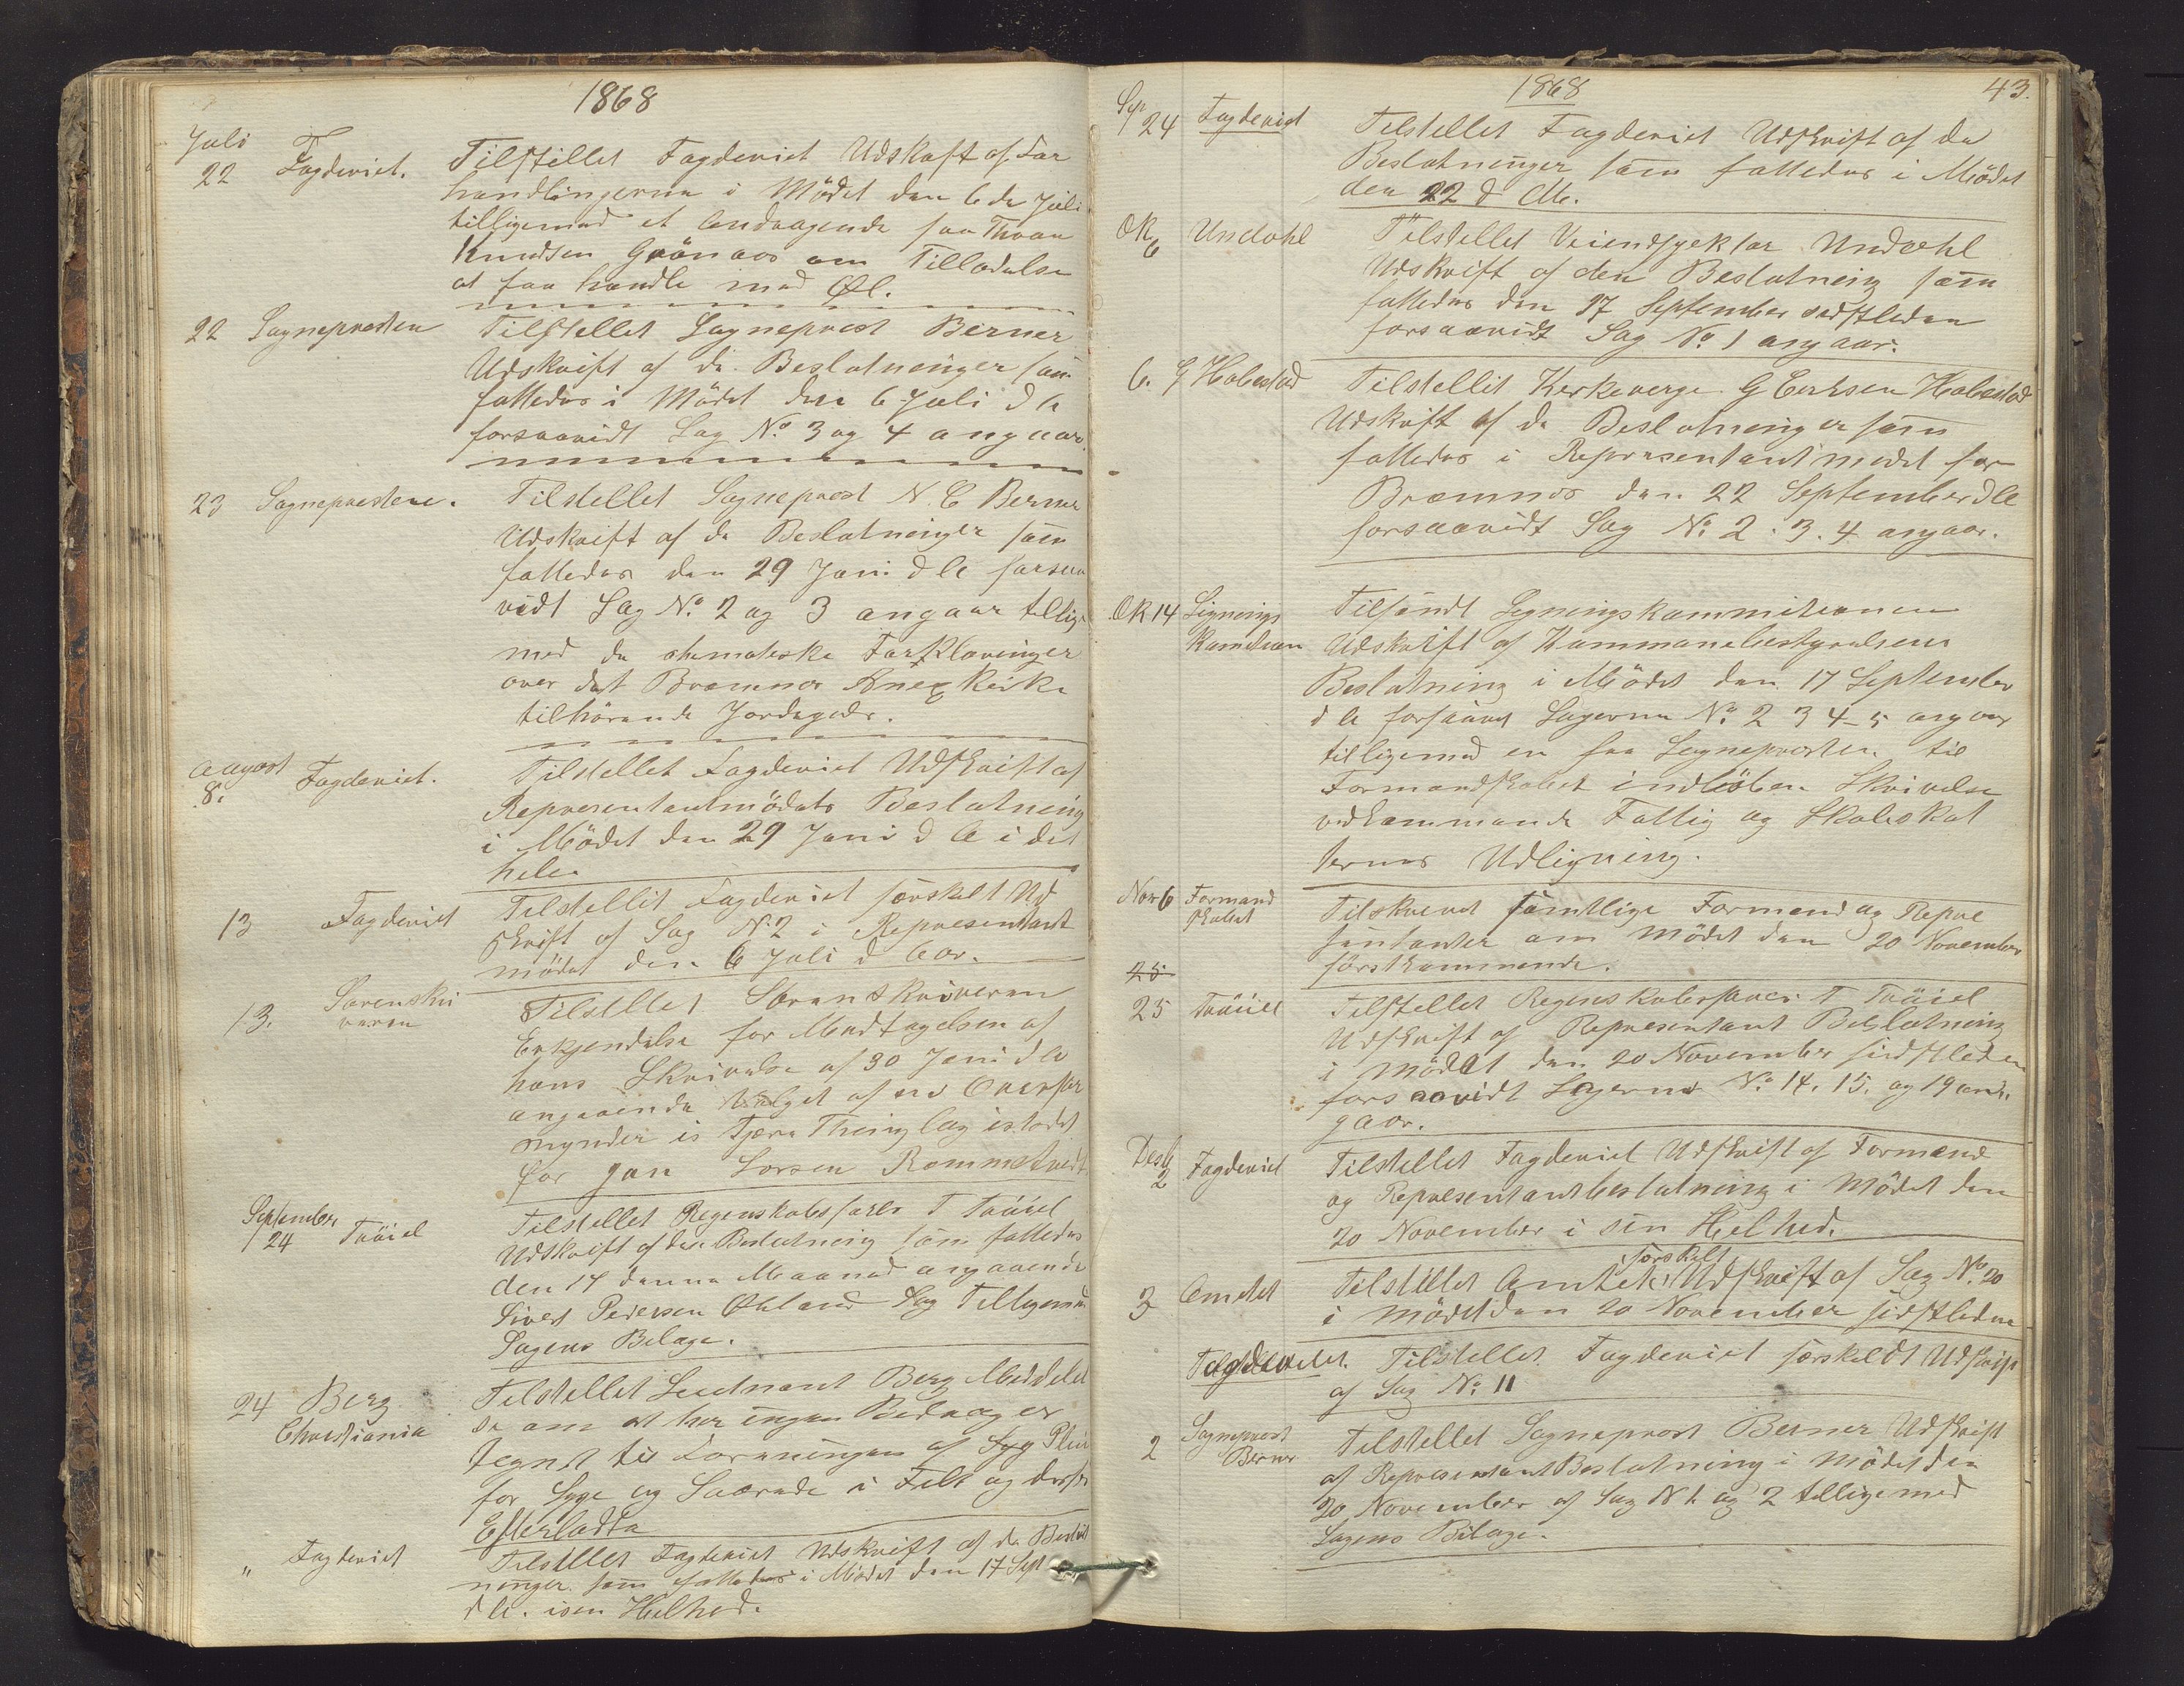 1868
Juli
22 Fogderiet. Tilstillet Fogderiet Udskrift af For
handlingerne i Mödet den 6de Juli
tilligemed et Andragende fra Thran
Knudsen Grönaas om Tilladelse
at faa handle med Øl.
22 Sognepresten Tilstellet Sogneprest Berner
Udskrift af de Beslutninger som
fattedes i Mödet den 6 Juli d A
forsaavidt Sag No 3 og 4 angaar.
23 Sognepresten. Tilstellet Sogneprest N. C Berner
Udskrift af de Beslutninger som
fattedes den 29 Juni d A forsaa
vidt Sag No 2 og 3 angaar tillige
med de Forklaringer
over det Bremnes Anex Kirke
tilhörende Jordegods.
August
8. Fogderiet. Tilstellet Fogderiet Udskrift af
Representantmödets Beslutning
i Mödet den 29 Juni d A i det
hele.
13 Fogderiet Tilstellet Fogderiet særskelt Ud
skrift af Sag No 2 i Representant
mödet den 6 Juli d Aar.
13. Sorenskri
veren Tilstellet Sorenskriveren
Erkjendelse for Modtagelsen af
hans Skrivelse af 30 Juni d A
angaaende Valget af en Overfor
mynder i Fjære Thinglag istedet
for Jon Larsen Rommetvedt
September
24 Tvöiel Tilstellet Regenskabsförer T Tvöiel
Udskrift af den Beslutning som fattedes
den 17 denne Maaned angaaende
Sivert Pedersen Økland Sag Tilligemed
Sagens Bilage.
24 Berg
Christiania Tilstellet Leutnant Berg Meddelel
se om at her ingen Bidrag er
tegnet til Foreningen af Syg Plei
for Syge og Saarede i Felt og deres
Efterladte
" Fogderiet Tilstillet Fogderiet Udskrift af de Beslut
ninger som fattedes i Mödet den 17 Sept
d A. i sin Helhed.
1868 43.
Sep
24 Fogderiet Tilstellet Fogderiet Udskrift af de
Beslutninger som fattedes i Mödet
den 22 d M.
Ok
6 Undahl Tilstellet Veiinspektør Undahl
Udskrift af den Beslutning som
fattedes den 17 September sidstleden
forsaavidt Sag No 1 angaar.
6. G Habestad Tilstellit Kirkeverge G Eriksen Habestad
Udskrift af de Beslutninger som
fattedes i Representantmödet for
Bremnes den 22 September d A
forsaavidt Sag No 2. 3. 4 angaar.
Ok 14 Lignings
Komision Tilsendt Ligningskommisionen
Udskrift af Kommunebestyrelsens
Beslutning i Mödet den 17 September
d A forsaavidt Sagerne No 2 3 4-5 angaar
tilligemed en fra Sognepresten til
Formandskabet indlöben Skrivelse
vedkommende Fattig og Skoleskat
ternes Udligning.
Nov 6 Formand
skabet Tilskrevet samtlige Formend og Repre
sentanter om Mödet den 20 November
förstkommende.
25
25 Tvöiel Tilstellet Regenskabsförer T Tvöiel
Udskrift af Representant Beslutning
i Mödet den 20 November sidstleden
forsaavidt Sagerne No 14, 15. og 19 an-
gaar.
Desb
2 Fogderiet Tilstellet Fogderiet Udskrift af Formend
og Representantbeslutning i Mödet den
20 November i sin Helhed.
særskelt
3 Amtet Tilstellet Amtet Udskrift af Sag No 20
i Mödet den 20 November sidstledne
Fogderiet. Tilstellet Fogderiet særskeldt Udskrift
af Sag No 11
2 Sogneprest
Berner Tilstellet Sogneprest Berner Udskrift
af Representant Beslutning i Mödet den
20 November af Sag N 1. og 2 tilligemed
Sagens Bilage.